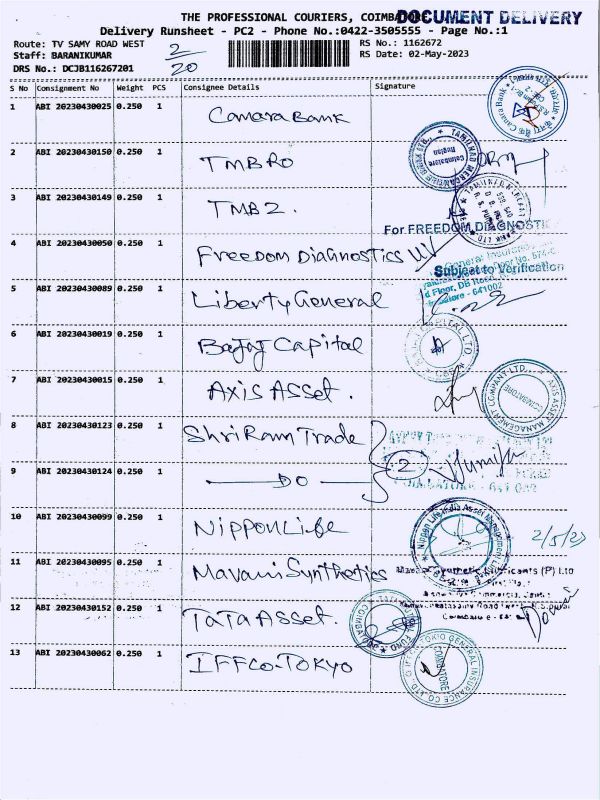 THE PROFESSIONAL COURIERS, COIMBATORE
DOCUMENT DELIVERY
Delivery Runsheet - PC2 - Phone No.:0422-3505555 - Page No.:1
Route: TV SAMY ROAD WEST
2/20
RS No.: 1162672
Staff: BARANIKUMAR
RS Date: 02-May-2023
DRS No.: DCJB116267201
S No Consignment No Weight PCS Consignee Details Signature
1 ABI 20230430025 0.250 1 Canara Bank
2 ABI 20230430150 0.250 1 TMB RO
3 ABI 20230430149 0.250 1 TMB 2.
For FREEDOM DIAGNOSTI
4 ABI 20230430050 0.250 1 Freedom Diagnostics
Subject to Verification
5 ABI 20230430089 0.250 1 Liberty General
d Floor, DB Road
- 641002
6 ABI 20230430019 0.250 1 Bajaj Capital
7 ABI 20230430015 0.250 1 Axis Asset.
AXIS ASSET MANAGEMENT COMPANY LTD.
COIMBATORE
8 ABI 20230430123 0.250 1 Shri Ram Trade
2
9 ABI 20230430124 0.250 1 — DO —
10 ABI 20230430099 0.250 1 Nippon Life
Nippon Life India Asset Management
2/5/23
11 ABI 20230430095 0.250 1 Mavani Synthetics
12 ABI 20230430152 0.250 1 TaTa Asset.
13 ABI 20230430062 0.250 1 IFFCO-TOKYO
TOKIO GENERAL INSURANCE CO. LTD
COIMBATORE